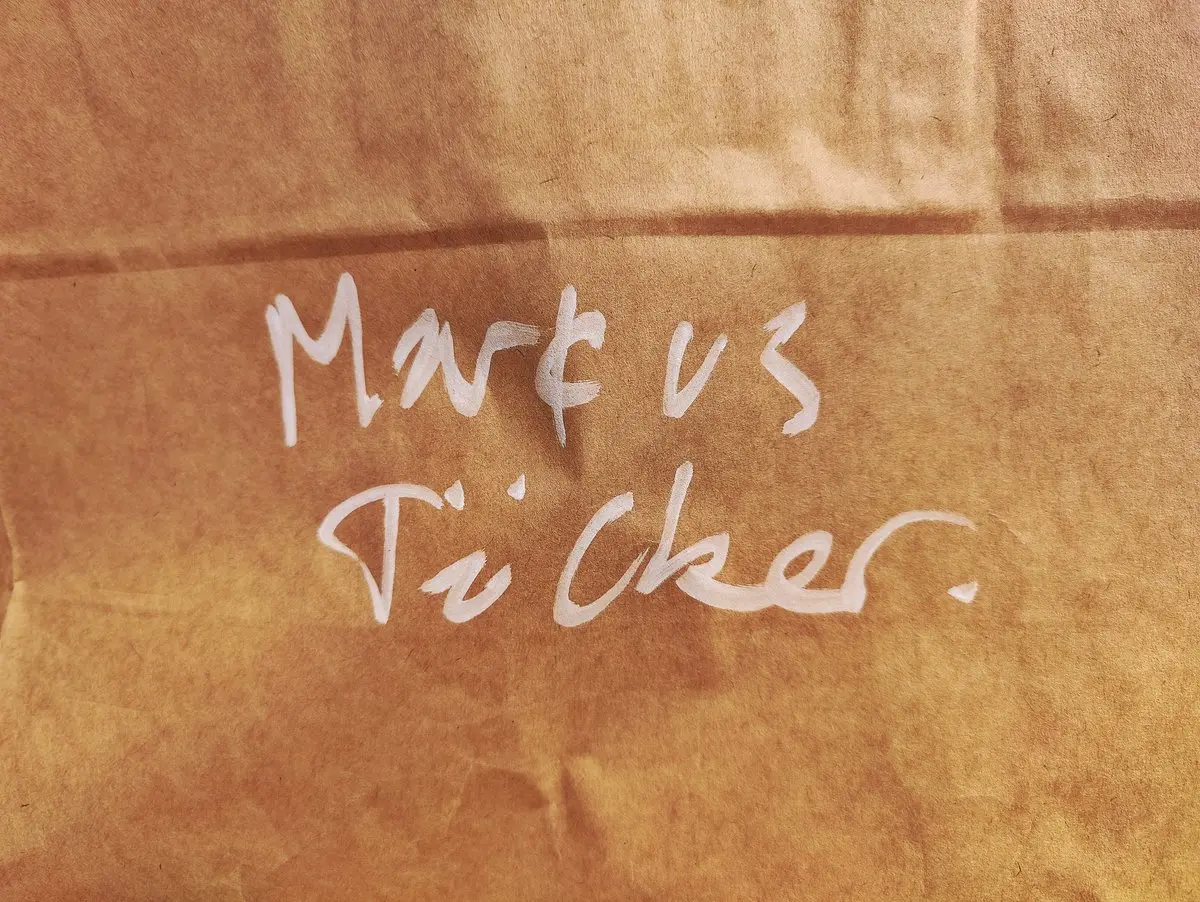 Markus
Tücker.